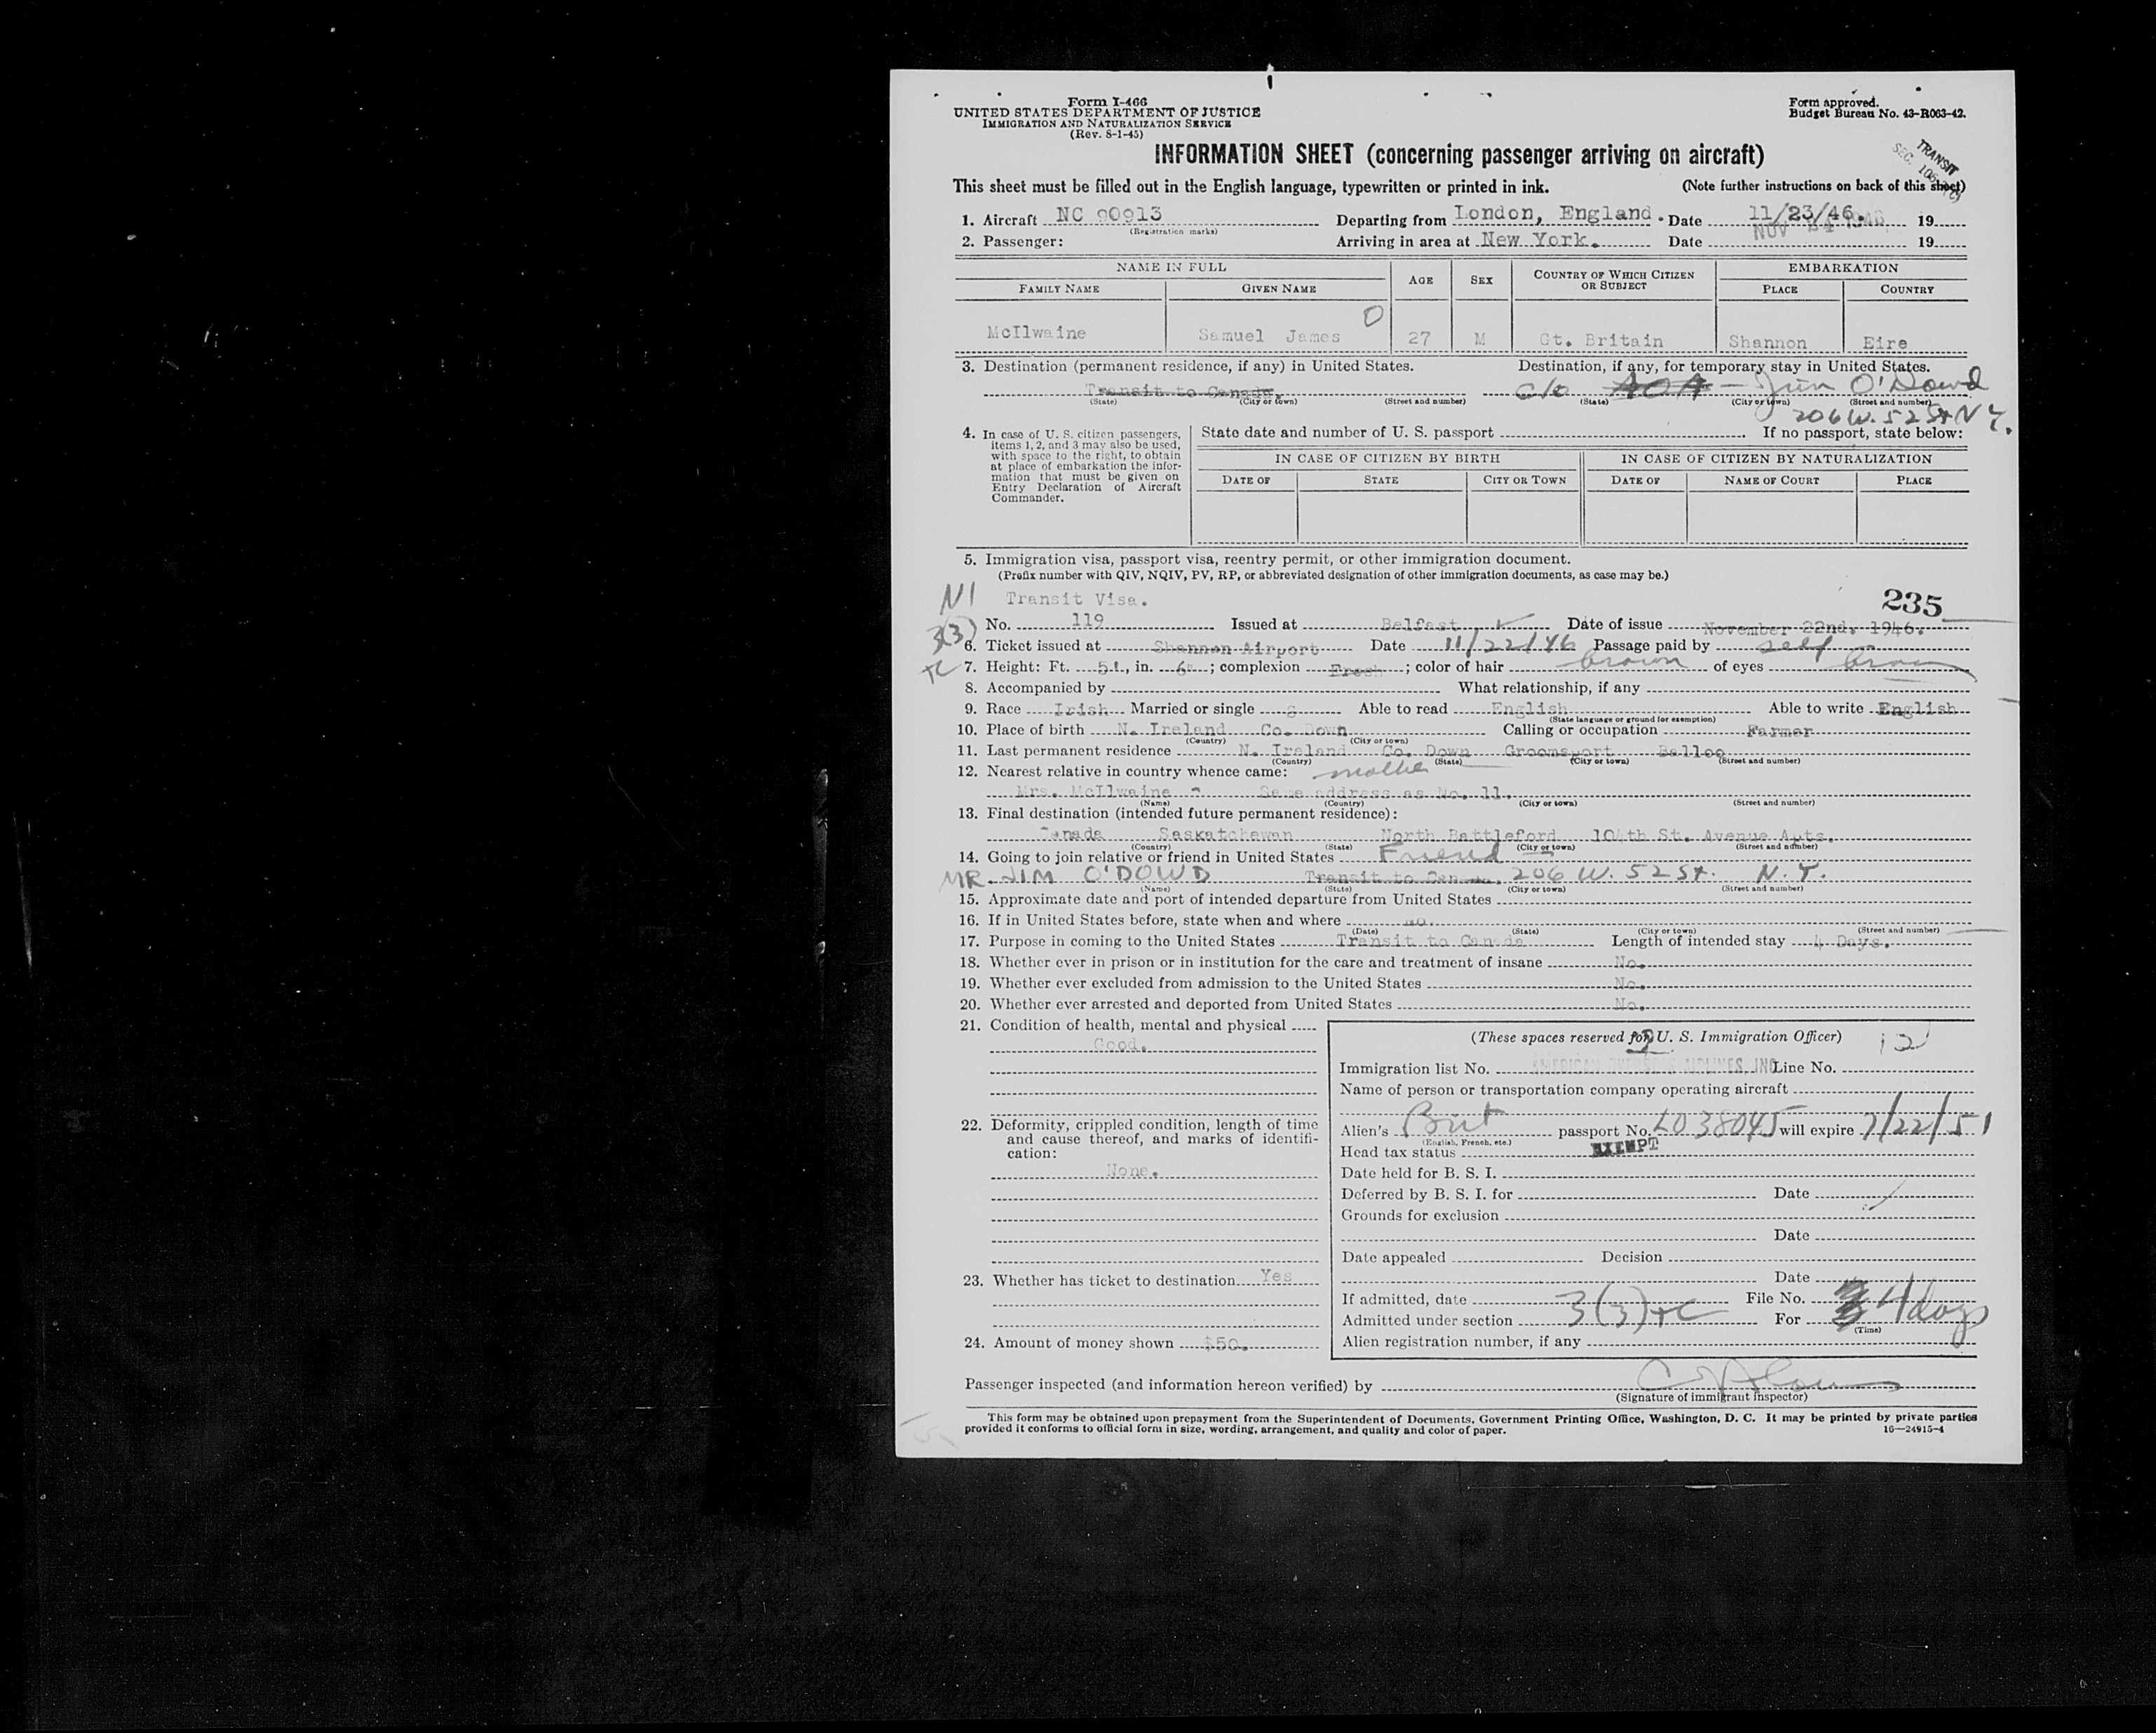 Form I-466
UNITED STATES DEPARTMENT OF JUSTICE
IMMIGRATION AND NATURALIZATION SERVICE
(Rev. 8-1-45)
Form approved.
Budget Bureau No. 43-R063-42.
INFORMATION SHEET (concerning passenger arriving on aircraft)
TRANSIT
SEC.
This sheet must be filled out in the English language, typewritten or printed in ink. (Note further instructions on back of this sheet)
1. Aircraft NC 90913 Departing from London, England. Date 11/23/46. 19
(Registration marks)
2. Passenger: Arriving in area at New York. Date NOV 24 19
NAME IN FULL AGE SEX COUNTRY OF WHICH CITIZEN OR SUBJECT EMBARKATION
FAMILY NAME GIVEN NAME PLACE COUNTRY
McIlwaine Samuel James 27 M Gt. Britain Shannon Eire
3. Destination (permanent residence, if any) in United States. Destination, if any, for temporary stay in United States.
Transit to Canada. c/o AOA - Jim O'Dowd
(State) (City or town) (Street and number) (State) (City or town) (Street and number)
206 W. 52 St N Y.
4. In case of U. S. citizen passengers, items 1, 2, and 3 may also be used, with space to the right, to obtain at place of embarkation the information that must be given on Entry Declaration of Aircraft Commander.
State date and number of U. S. passport If no passport, state below:
IN CASE OF CITIZEN BY BIRTH IN CASE OF CITIZEN BY NATURALIZATION
DATE OF STATE CITY OR TOWN DATE OF NAME OF COURT PLACE
5. Immigration visa, passport visa, reentry permit, or other immigration document.
(Prefix number with QIV, NQIV, PV, RP, or abbreviated designation of other immigration documents, as case may be.)
NI Transit Visa. 235
3(3) No. 119 Issued at Belfast Date of issue November 22nd. 1946.
6. Ticket issued at Shannon Airport Date 11/22/46 Passage paid by self
7. Height: Ft. 5, in. 6; complexion Fresh; color of hair brown of eyes brown
8. Accompanied by What relationship, if any
9. Race Irish Married or single S Able to read English Able to write English
(State language or ground for exemption)
10. Place of birth N. Ireland Co. Down Calling or occupation Farmer
(Country) (City or town)
11. Last permanent residence N. Ireland Co. Down Groomsport Balloo
(Country) (State) (City or town) (Street and number)
12. Nearest relative in country whence came: mother
Mrs. McIlwaine - Same address as No. 11.
(Name) (Country) (City or town) (Street and number)
13. Final destination (intended future permanent residence):
Canada Saskatchewan North Battleford 104th St. Avenue Apts.
(Country) (State) (City or town) (Street and number)
14. Going to join relative or friend in United States Friend
MR. JIM O'DOWD Transit to Canada. 206 W. 52 St. N. Y.
(Name) (State) (City or town) (Street and number)
15. Approximate date and port of intended departure from United States
16. If in United States before, state when and where No.
(Date) (State) (City or town) (Street and number)
17. Purpose in coming to the United States Transit to Canada Length of intended stay 4 Days.
18. Whether ever in prison or in institution for the care and treatment of insane No.
19. Whether ever excluded from admission to the United States No.
20. Whether ever arrested and deported from United States No.
21. Condition of health, mental and physical
Good.
(These spaces reserved for U. S. Immigration Officer) 12
Immigration list No. AMERICAN OVERSEAS AIRLINES, INC Line No.
Name of person or transportation company operating aircraft
22. Deformity, crippled condition, length of time and cause thereof, and marks of identification:
None.
Alien's Brit passport No. L038045 will expire 7/22/51
(English, French, etc.)
Head tax status EXEMPT
Date held for B. S. I.
Deferred by B. S. I. for Date
Grounds for exclusion
Date
Date appealed Decision
23. Whether has ticket to destination Yes
Date
If admitted, date File No.
Admitted under section 3(3)+C For 4 days
(Time)
24. Amount of money shown $50.
Alien registration number, if any
Passenger inspected (and information hereon verified) by
(Signature of immigrant inspector)
This form may be obtained upon prepayment from the Superintendent of Documents, Government Printing Office, Washington, D. C. It may be printed by private parties
provided it conforms to official form in size, wording, arrangement, and quality and color of paper. 16—24915-4